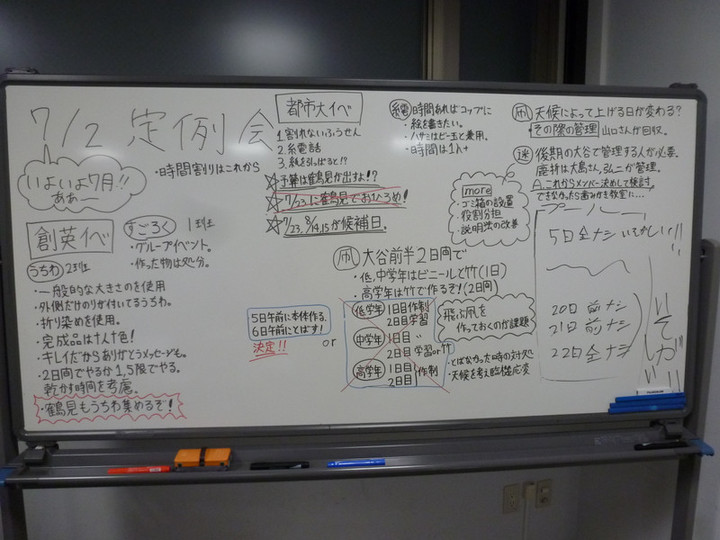 7/2 定例会
いよいよ7月!!
ああ〜
・時間割りはこれから
創英イベ
すごろく 1班
・グループイベント。
・作った物は処分。
うちわ 2班
・一般的な大きさのを使用
・外側だけのりが付いてるうちわ。
・折り染めを使用。
・完成品は十人十色!
・キレイだからありがとうメッセージも。
・2日間でやるか1,5限でやる。
乾かす時間を考慮。
・鶴見もうちわ集めるぞ!
都市大イベ
1.割れないふうせん
2.糸電話
3.紙を引っぱると!?
☆予算は鶴見が出すよ!?
☆7/23に鶴見でおひろめ!
☆7/23,8/14,15が候補日。
糸電 時間あればコップに
・絵を書きたい。
・ハサミはビー玉と兼用。
・時間は1h+
more
・ゴミ箱の設置
・役割分担
・説明法の改善
凧 大谷前半2日間で
・低.中学年はビニールと竹(1日)
・高学年は竹で作るぞ!(2日間)
5日午前に本体作る、
6日午前にとばす!
決定!!
or
低学年 1日目作制
2日目学習
中学年 1日目 〃
2日目 学習or竹
高学年 1日目 作制
2日目
飛ぶ凧を
作っておくのが課題
・とばなかった時の対処
・天候を考え臨機応変
凧 天候によって上げる日が変わる?
・その際の管理 山口さんが回収。
迷 後期の大谷で管理する人が必要。
廃材は大島さん,弘ニが管理。
A,これからメンバー決めして検討,
できなかったら歯みがき教室に…
プール
5日全ナシ いそがしい!!
20日 前ナシ
21日 前ナシ
22日 全ナシ
いそがしい!!